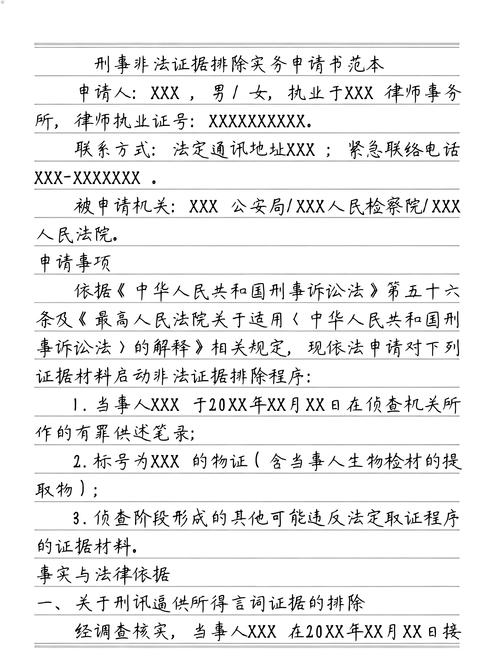 刑事非法证据排除实务申请书范本
申请人: XXX , 男/女, 执业于XXX 律师事务
所, 律师执业证号: XXXXXXXXXX.
联系方式: 法定通讯地址XXX ; 紧急联络电话
XXX-XXXXXXX .
被申请机关: XXX 公安局/XXX人民检察院/XXX
人民法院.
申请事项
依据《中华人民共和国刑事诉讼法》第五十六
条及《最高人民法院关于适用〈中华人民共和国刑
事诉讼法〉的解释》相关规定, 现依法申请对下列
证据材料启动非法证据排除程序:
1.当事人XXX 于20XX年XX月XX日在侦查机关所
作的有罪供述笔录;
2.标号为XXX 的物证(含当事人生物检材的提
取物);
3.侦查阶段形成的其他可能违反法定取证程序
的证据材料.
事实与法律依据
一、关于刑讯逼供所得言词证据的排除
经调查核实, 当事人XXX 在20XX年XX月XX日接